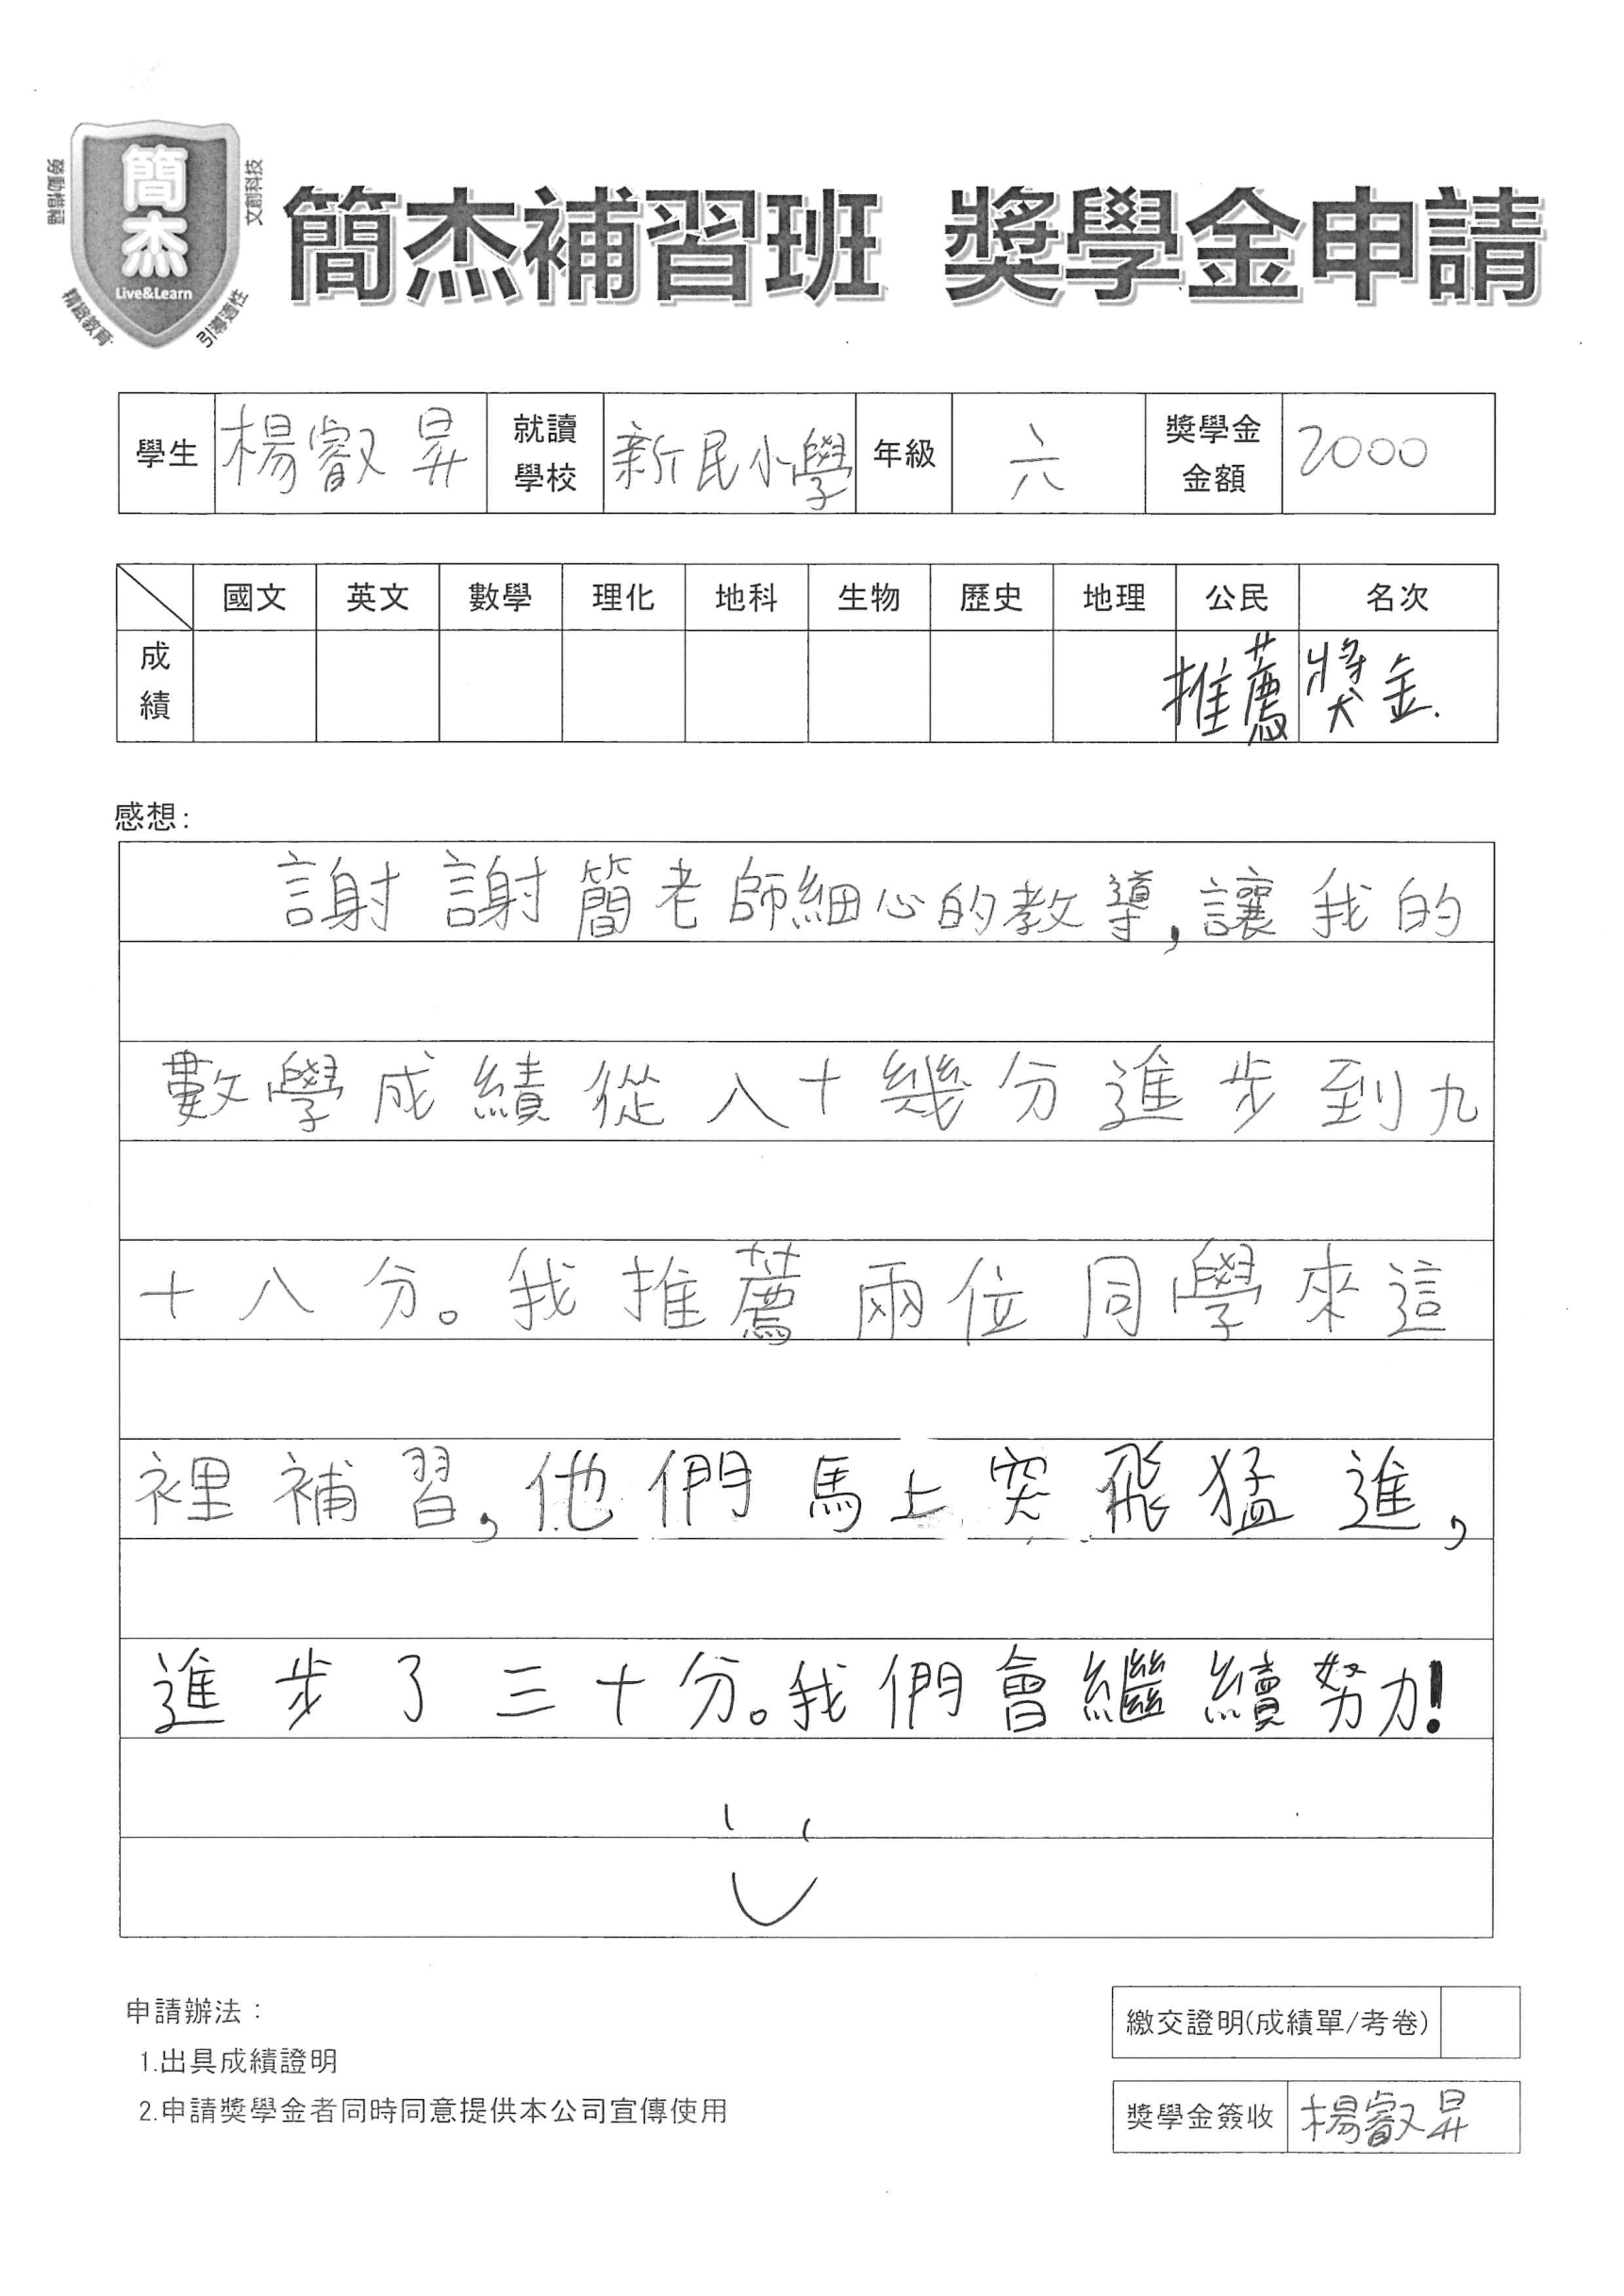 簡杰
Live&Learn
勞動惜福
文創科技
精緻教育
引導適性
簡杰補習班 獎學金申請
學生 楊叡昇 就讀學校 新民小學 年級 六 獎學金金額 2000
國文 英文 數學 理化 地科 生物 歷史 地理 公民 名次
成績 推薦獎金.
感想:
謝謝簡老師細心的教導,讓我的
數學成績從八十幾分進步到九
十八分。我推薦兩位同學來這
裡補習,他們馬上突飛猛進,
進步了三十分。我們會繼續努力!
申請辦法:
1.出具成績證明
2.申請獎學金者同時同意提供本公司宣傳使用
繳交證明(成績單/考卷)
獎學金簽收 楊叡昇